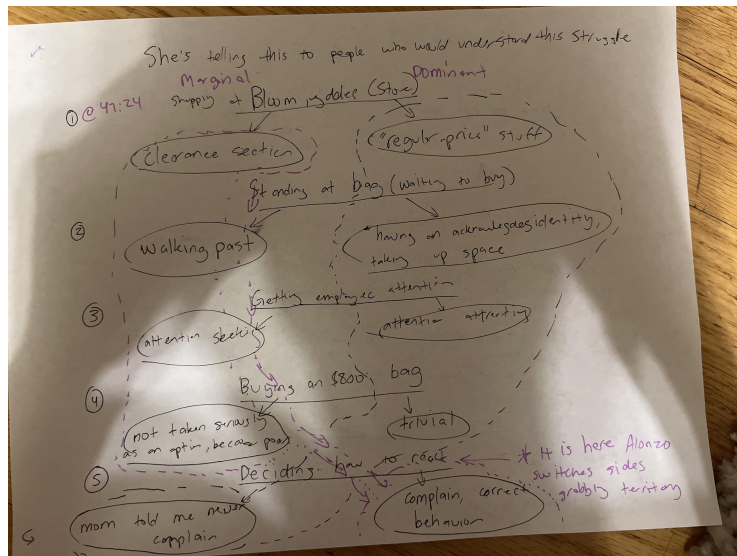 She's telling this to people who would understand this struggle
Marginal
Dominant
① @ 47:24 shopping at Bloomingdales (store)
clearance section
"regular-price" stuff
Standing at bag (waiting to buy)
②
walking past
having an acknowledged identity,
taking up space
Getting employee attention
③
attention seeking
attention attracting
Buying an $800 bag
④
not taken seriously
as an option, because poor
trivial
⑤
Deciding how to react
* It is here Alonzo
switches sides
grabbing territory
mom told me never
complain
complain, correct
behavior